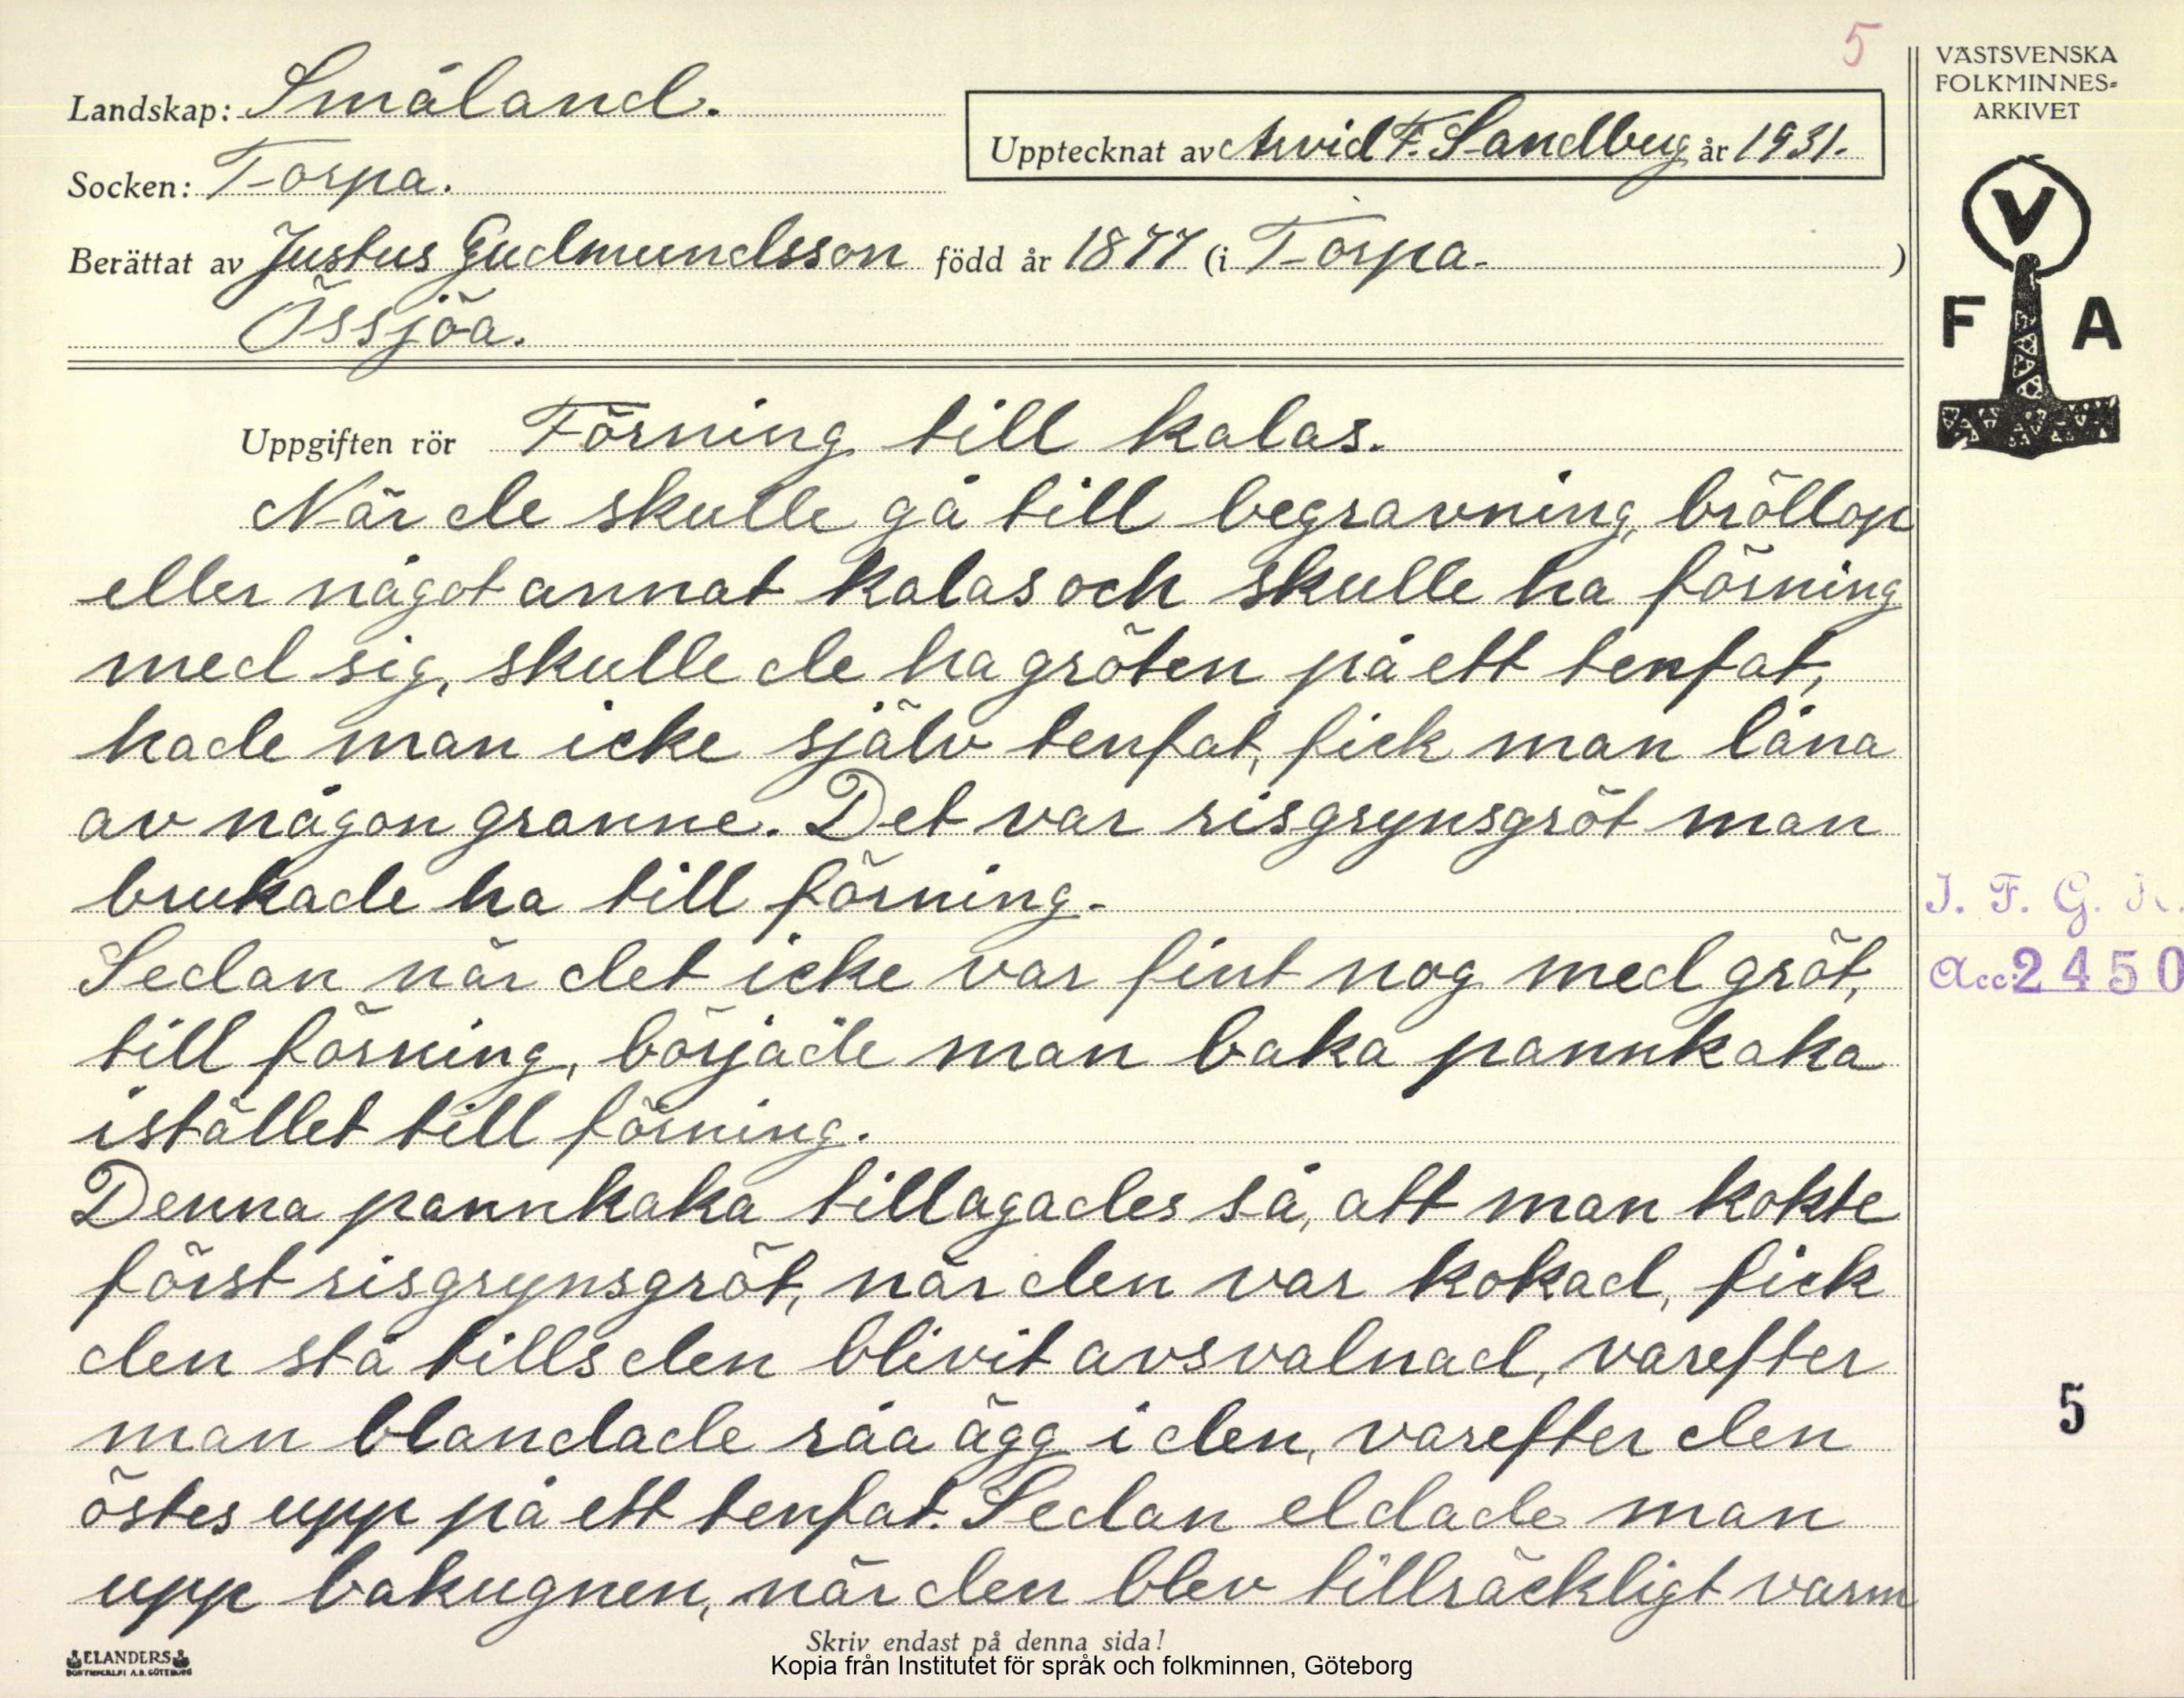 5
VÄSTSVENSKA
FOLKMINNES-
ARKIVET
Landskap: Småland.
Upptecknat av Arvid F. Sandberg år 1931.
Socken: Torpa.
Berättat av Justus Gudmundsson född år 1877 (i Torpa. )
Össjöa.
V
F A
Uppgiften rör Förning till kalas.
När de skulle gå till begravning, bröllop
eller något annat kalas och skulle ha förning
med sig, skulle de ha gröten på ett tenfat,
hade man icke själv tenfat, fick man låna
av någon granne. Det var risgrynsgröt man
brukade ha till förning.
Sedan när det icke var fint nog med gröt,
till förning, började man baka pannkaka
istället till förning.
Denna pannkaka tillagades så, att man kokte
först risgrynsgröt, när den var kokad, fick
den stå tills den blivit avsvalnad, varefter
man blandade råa ägg i den, varefter den
östes upp på ett tenfat. Sedan eldade man
upp bakugnen, när den blev tillräckligt varm
I. F. G. H.
Acc: 2450
5
ELANDERS
Skriv endast på denna sida!
Kopia från Institutet för språk och folkminnen, Göteborg